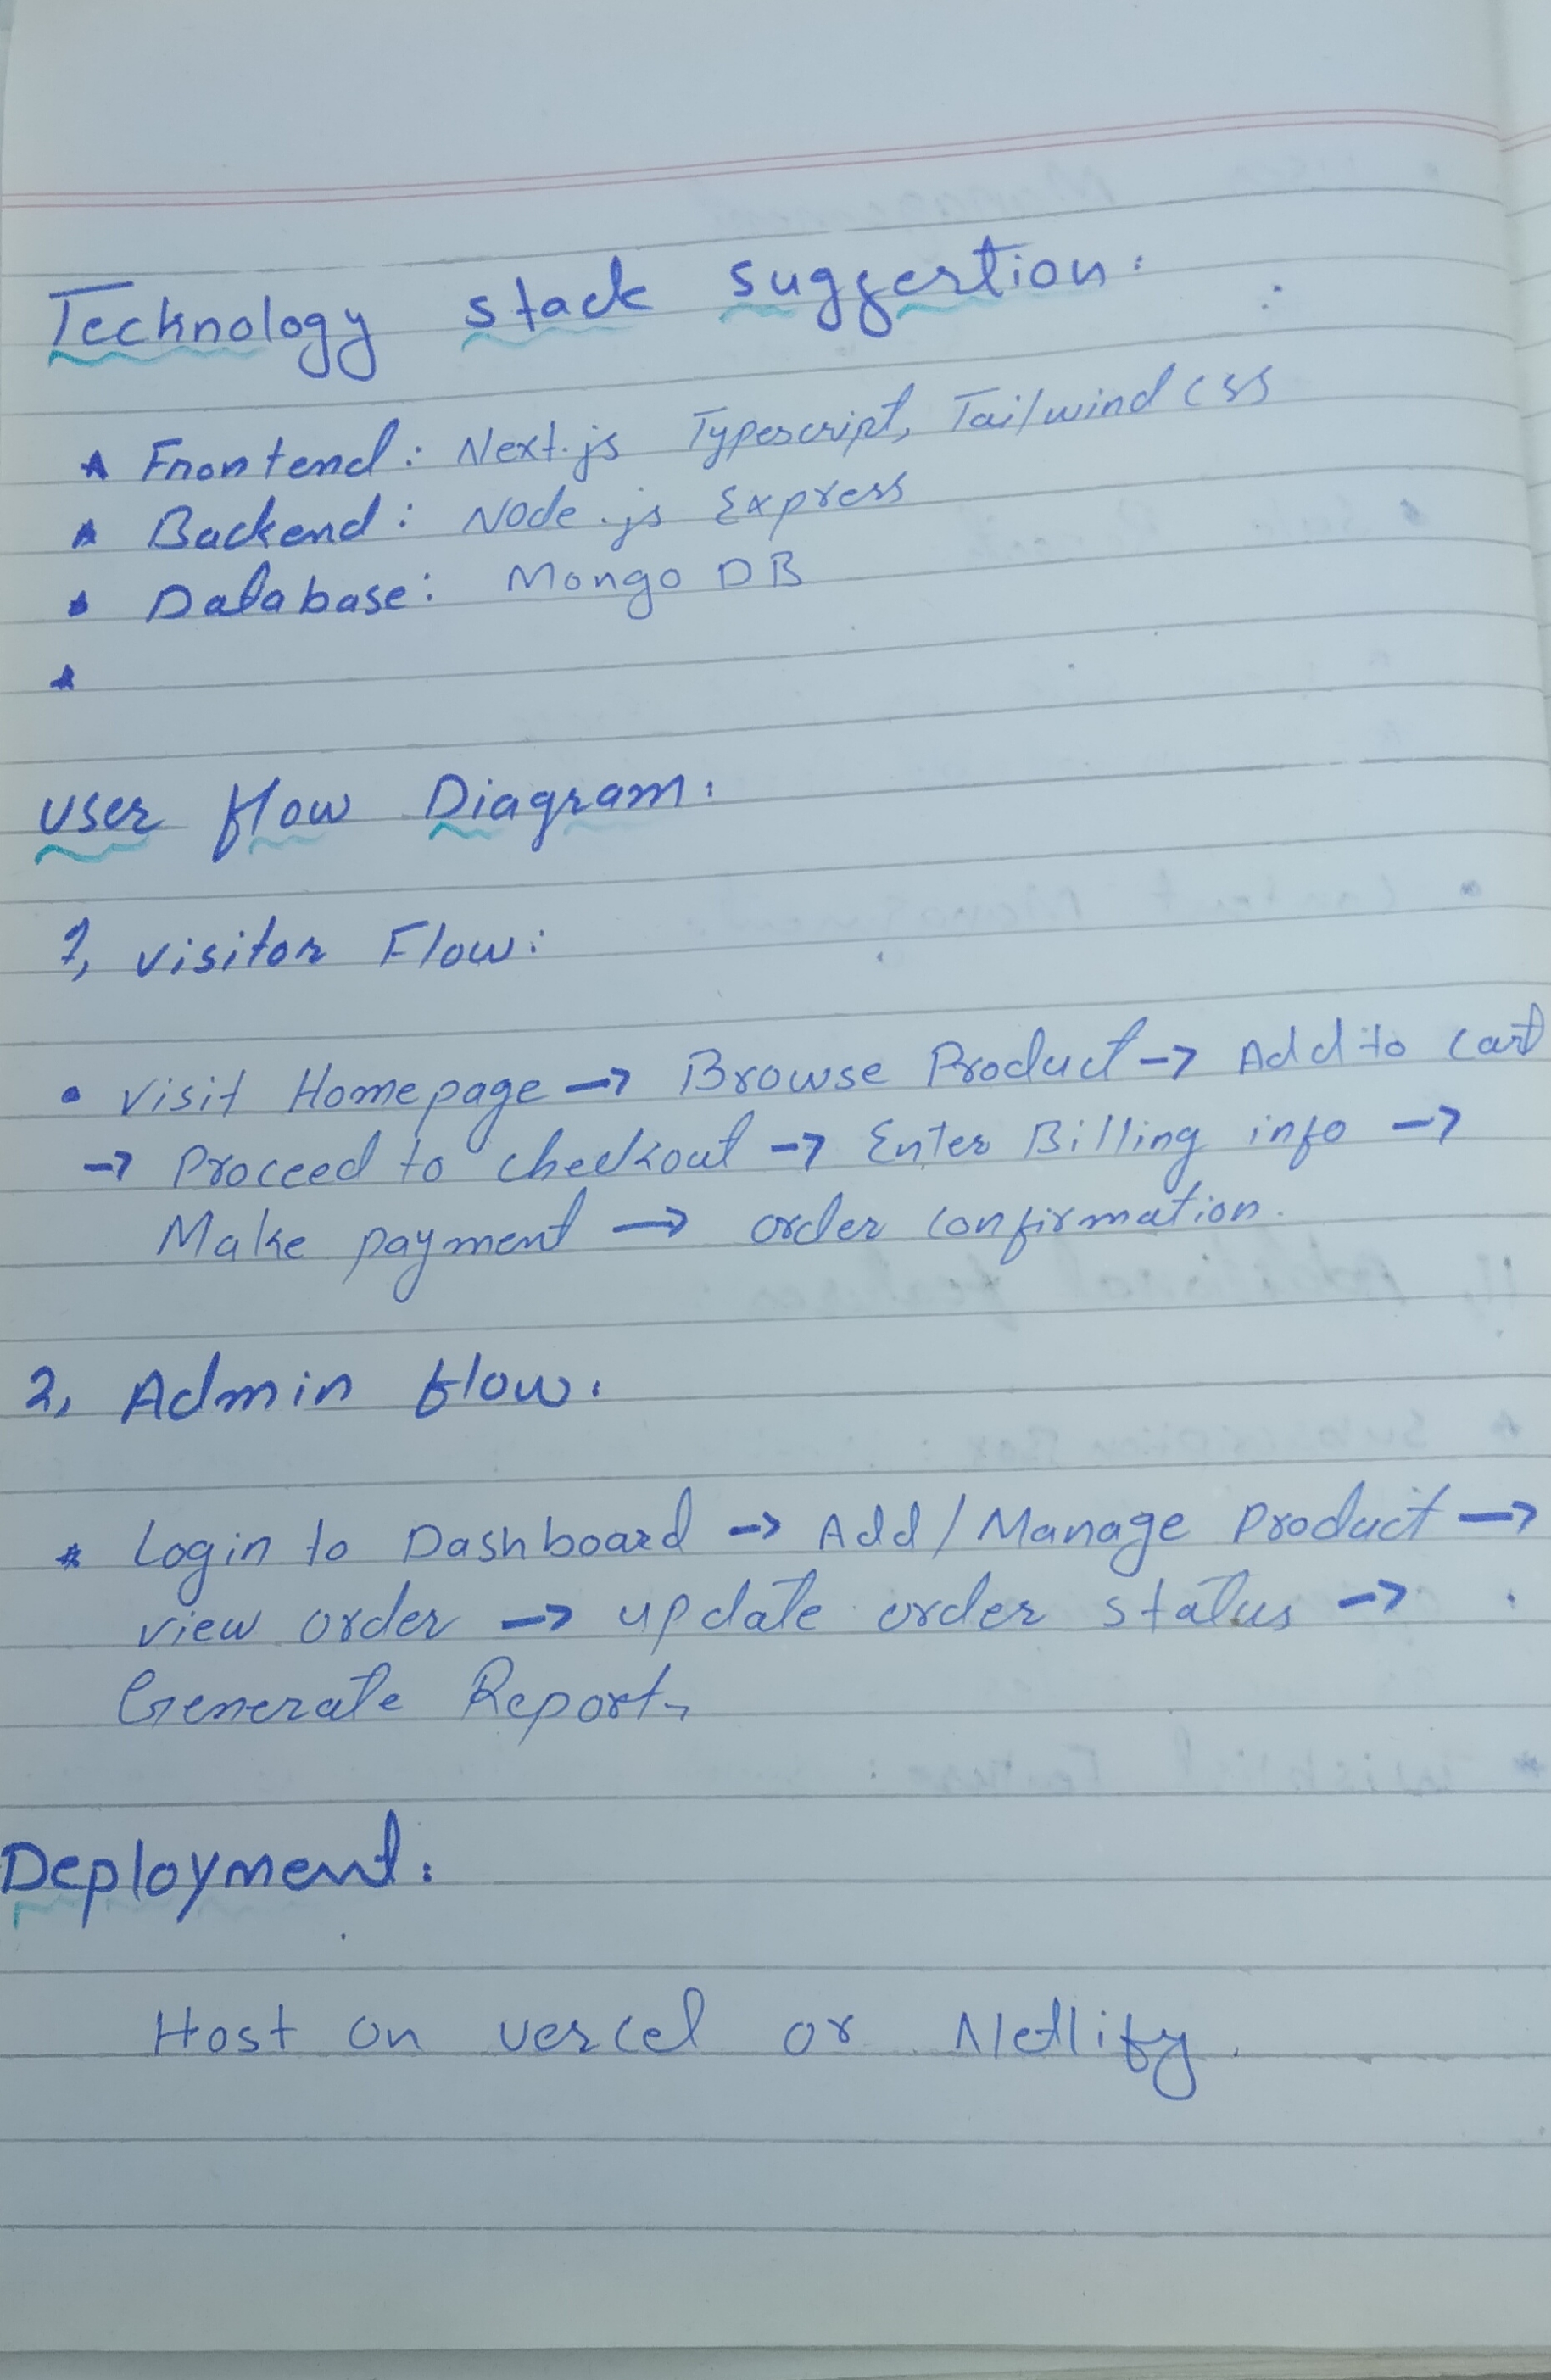 Technology stack suggestion:
* Frontend: Next.js Typescript, Tailwind CSS
* Backend: Node.js Express
* Database: Mongo DB
*
User flow Diagram:
1, visitor Flow:
• Visit Homepage → Browse Product → Add to cart
→ Proceed to checkout → Enter Billing info →
Make payment → order confirmation.
2, Admin flow:
* Login to Dashboard → Add/Manage Product →
view order → update order status →
Generate Report,
Deployment:
Host on vercel or Netlify.